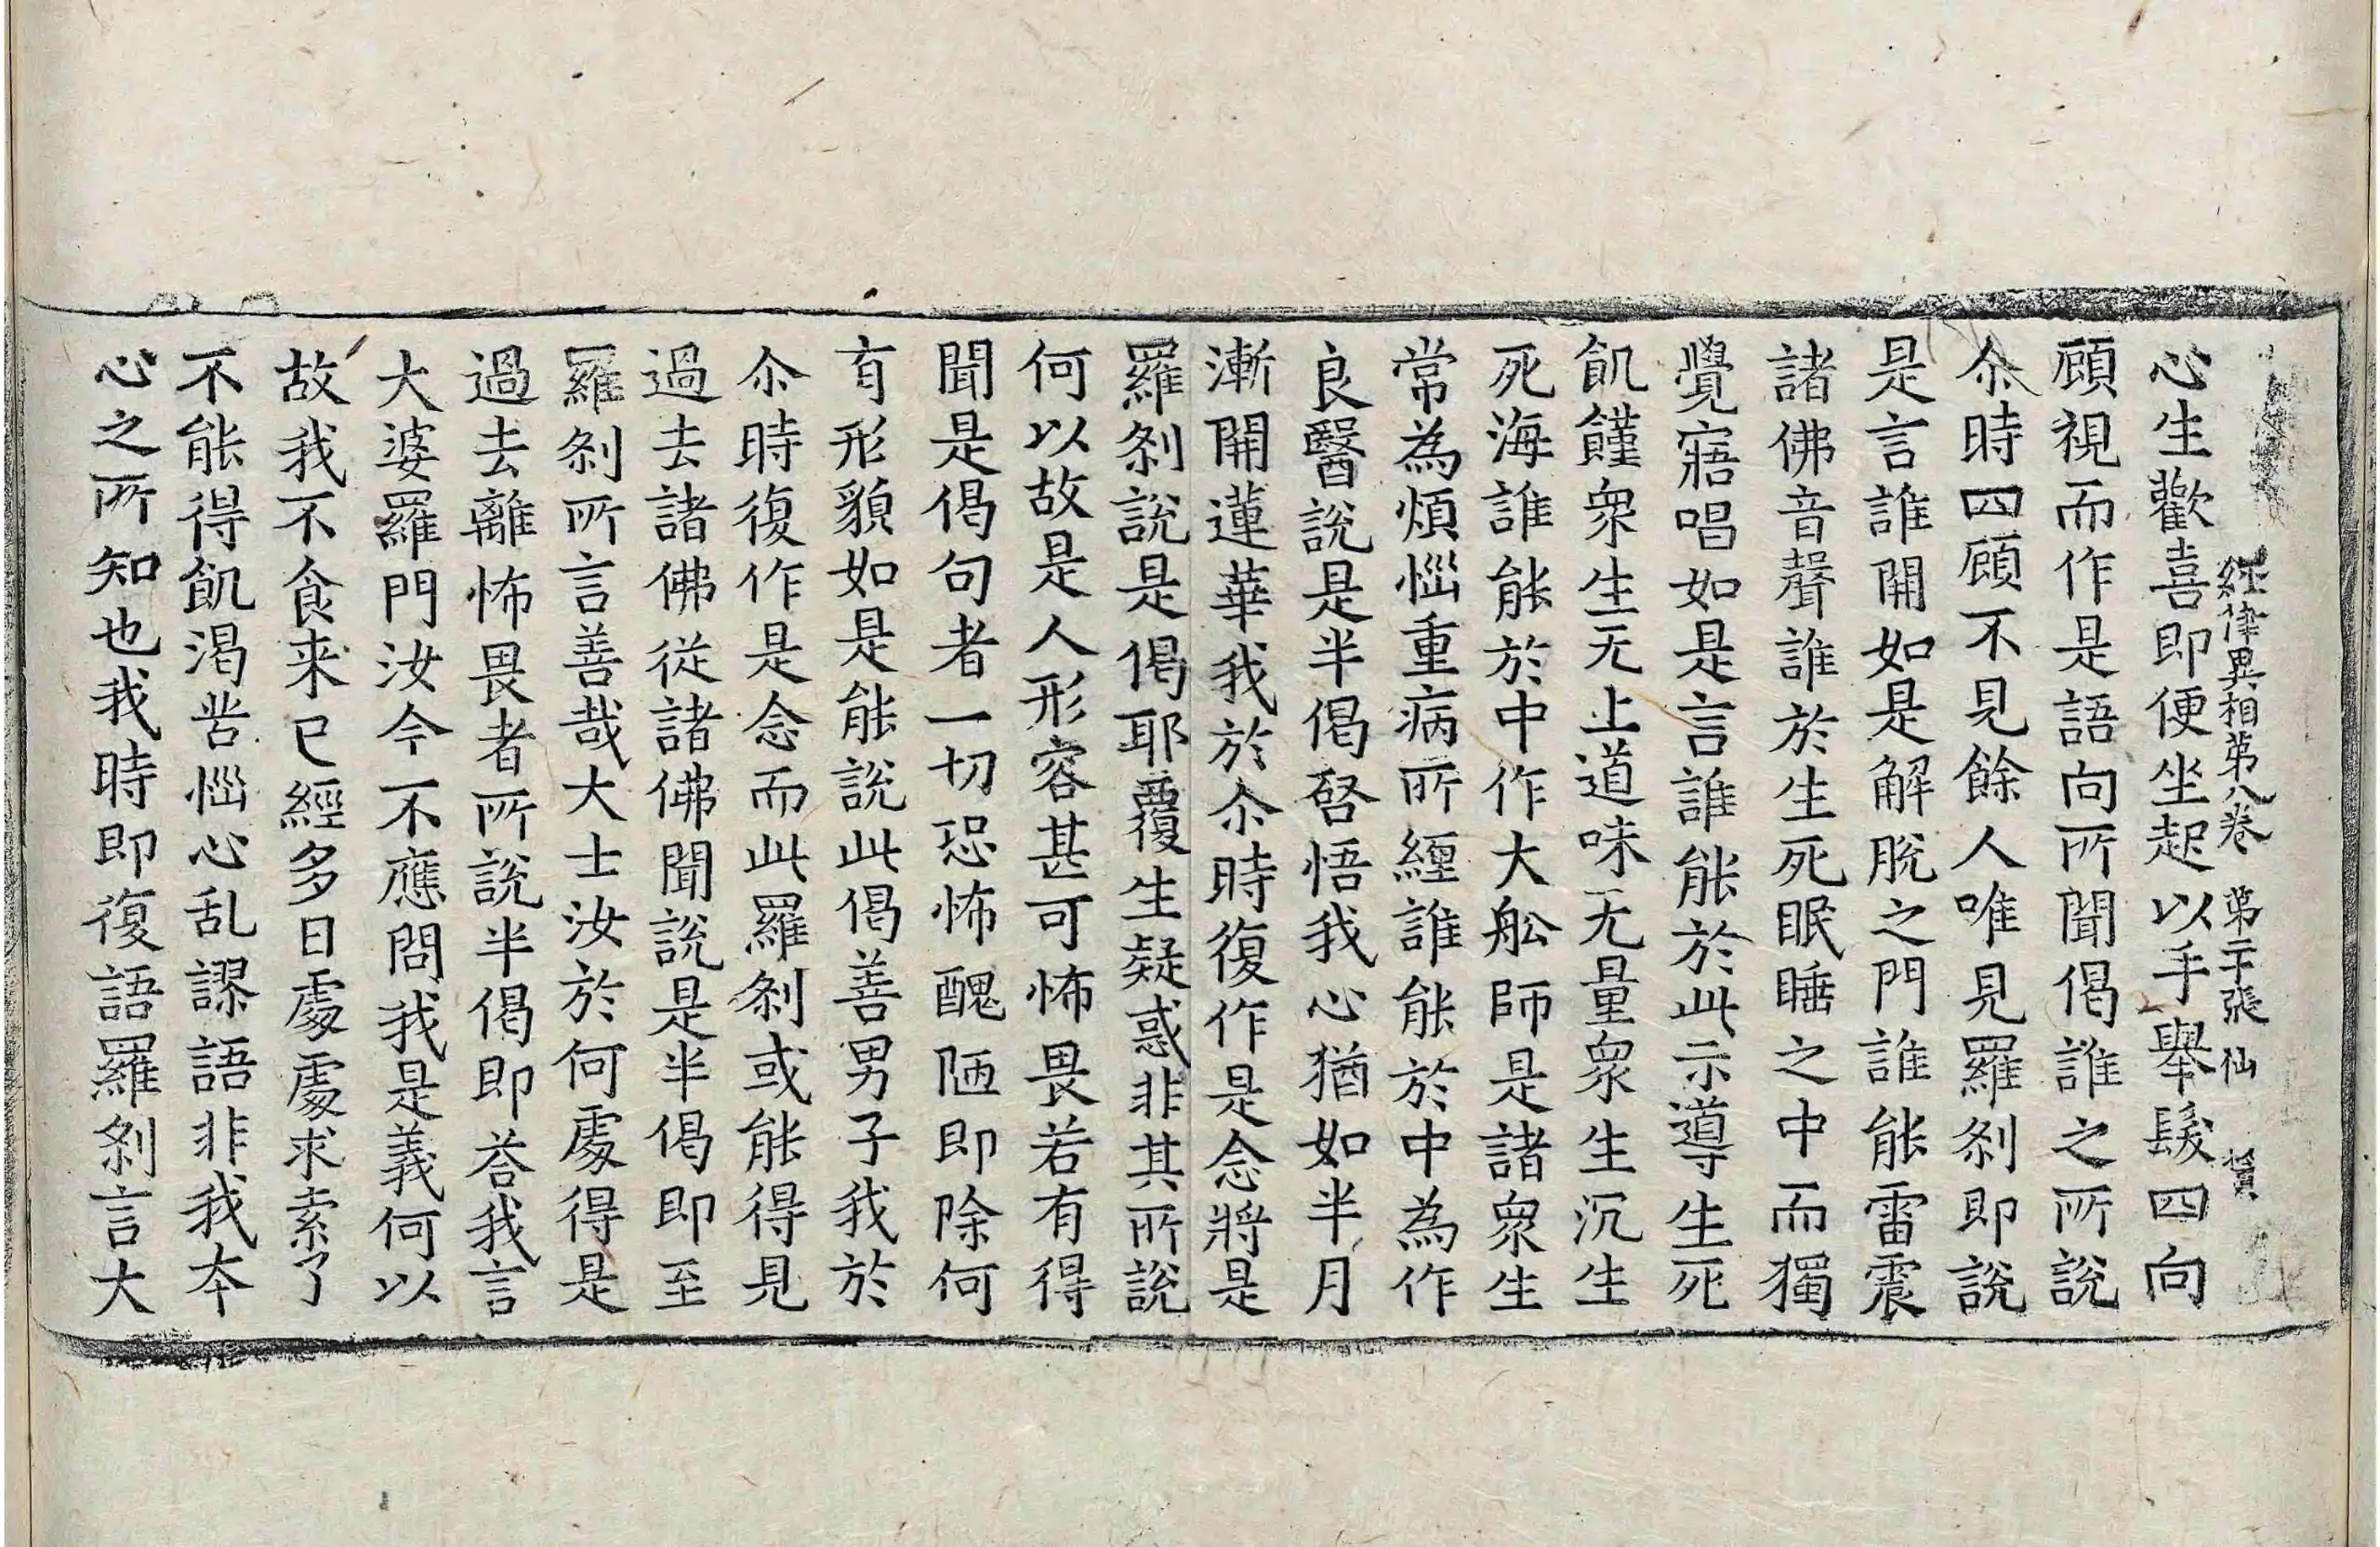 経律異相第八卷 第二十張 仙
心生歡喜即便坐起以手舉髮四向
顧視而作是語向所聞偈誰之所說
尒時四顧不見餘人唯見羅刹即說
是言誰開如是解脫之門誰能雷震
諸佛音聲誰於生死眠睡之中而獨
覺寤唱如是言誰能於此示導生死
飢饉衆生无上道味无量衆生沉生
死海誰能於中作大舩師是諸衆生
常為煩惱重病所纏誰能於中為作
良醫說是半偈啓悟我心猶如半月
漸開蓮華我於尒時復作是念將是
羅刹說是偈耶覆生疑惑非其所說
何以故是人形容甚可怖畏若有得
聞是偈句者一切恐怖醜陋即除何
有形貌如是能說此偈善男子我於
尒時復作是念而此羅刹或能得見
過去諸佛從諸佛聞說是半偈即至
羅刹所言善哉大士汝於何處得是
過去離怖畏者所說半偈即荅我言
大婆羅門汝今不應問我是義何以
故我不食来已經多日處處求索了
不能得飢渴苦惱心乱謬語非我本
心之所知也我時即復語羅刹言大